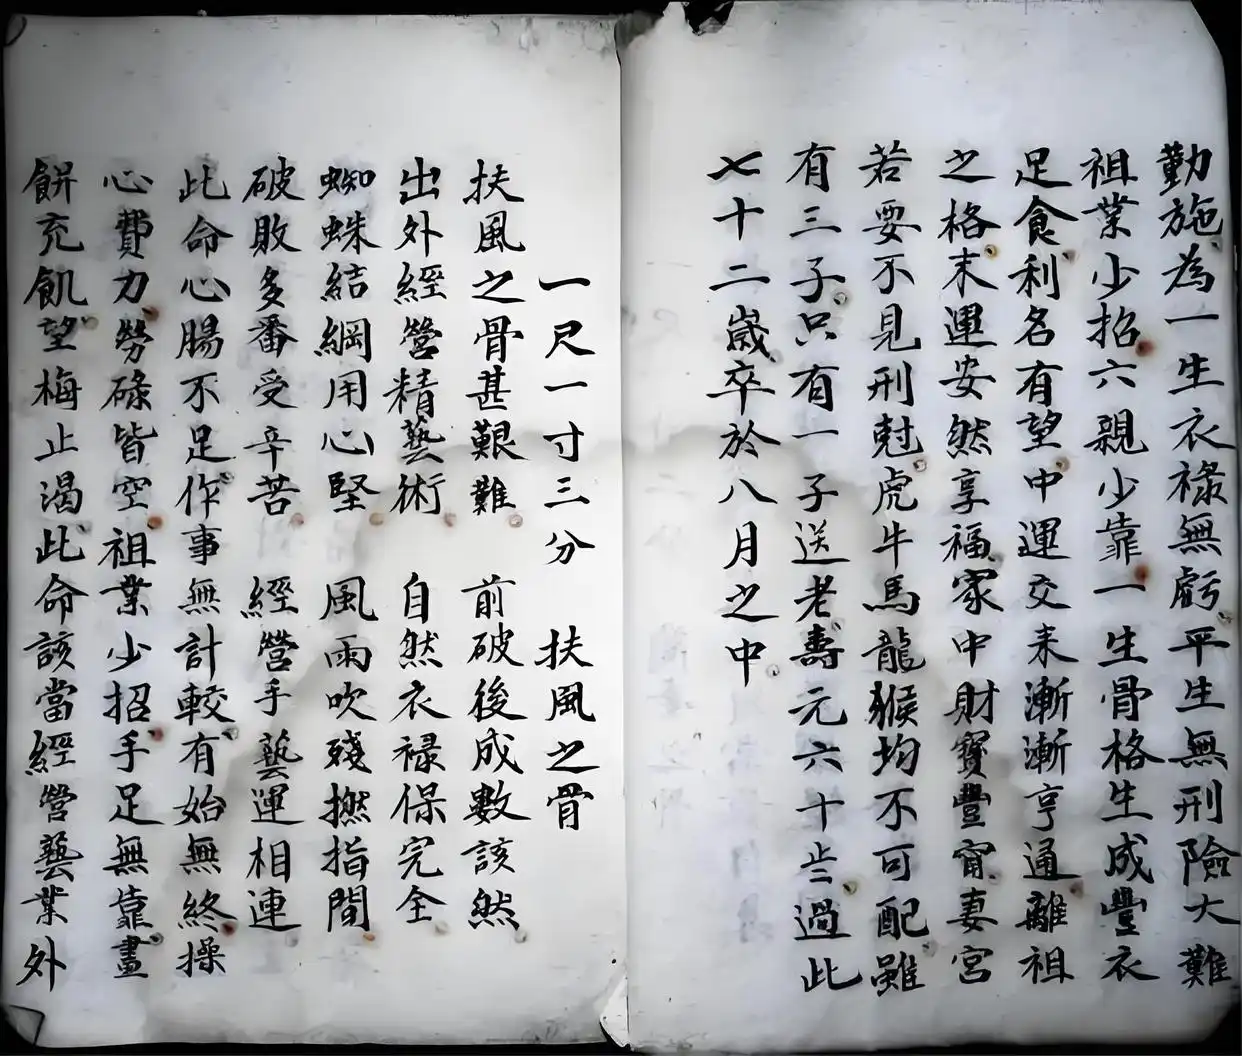 勤施為一生衣祿無虧平生無刑險大難
祖業少招六親少靠一生骨格生成豐衣
足食利名有望中運交來漸漸亨通離祖
之格末運安然享福家中財寶豐甯妻宮
若要不見刑尅虎牛馬龍猴均不可配雖
有三子只有一子送老壽元六十 過此
七十二歲卒於八月之中
一尺一寸三分 扶風之骨
扶風之骨甚艱難 前破後成數該然
出外經營精藝術 自然衣禄保完全
蜘蛛結綱用心堅 風雨吹殘撚指間
破敗多番受辛苦 經營手藝運相連
此命心腸不足作事無計較有始無終操
心費力勞碌皆空祖業少招手足無靠畫
餅充飢望梅止渴此命該當經營藝業外